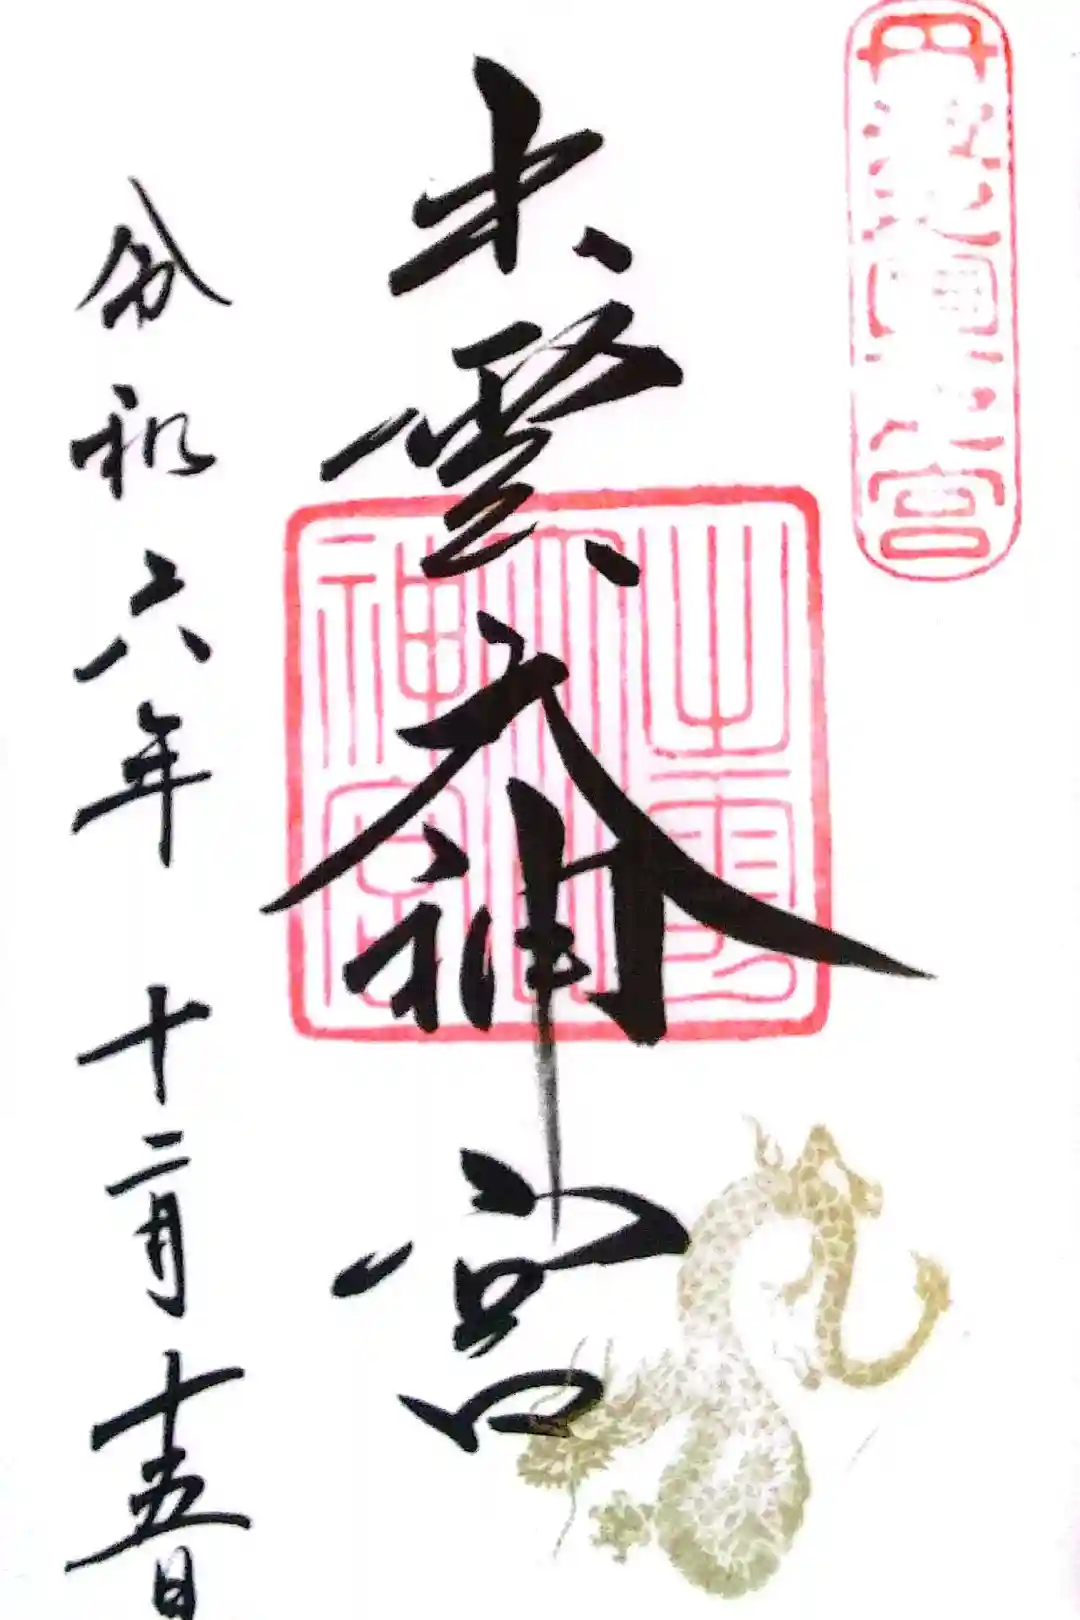 丹波國一之宮
出雲大神宮
出雲大神宮
令和六年十二月十五日